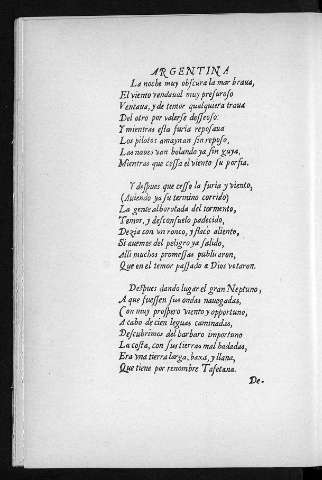 ARGENTINA
La noche muy obscura la mar braua,
El viento vendaual muy presuroso
Ventaua, y de temor qualquiera traua
Del otro por valerse desseoso:
Y mientras esta furia reposaua
Los pilotos amaynan sin reposo,
Las naues van bolando ya sin guya,
Mientras que cessa el viento su porfia.
Y despues que cesso la furia y viento,
(Auiendo ya su termino corrido)
La gente alborotada del tormento,
Temor, y desconsuelo padecido,
Dezia con vn ronco, y flaco aliento,
Si auemos del peligro ya salido,
Alli muchos promessas publicaron,
Que en el temor passado a Dios votaron.
Despues dando lugar el gran Neptuno,
A que fuessen sus ondas nauegadas,
Con muy prospero viento y opportuno,
A cabo de cien leguas caminadas,
Descubrimos del barbaro importuno
La costa, con sus tierras mal hadadas,
Era vna tierra larga, baxa, y llana,
Que tiene por renombre Tafetana.
De-